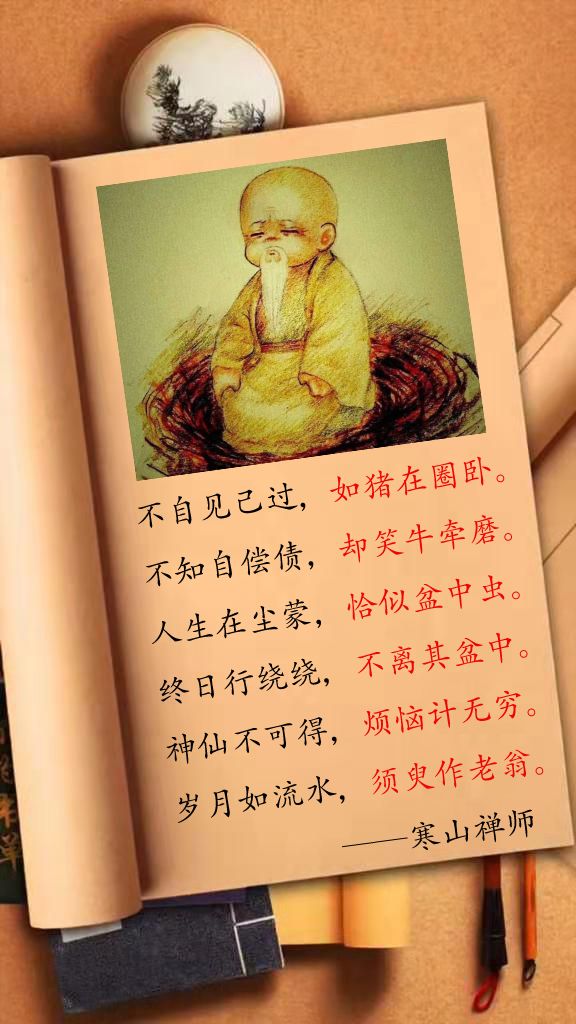 不自见己过，如猪在圈卧。
不知自偿债，却笑牛牵磨。
人生在尘蒙，恰似盆中虫。
终日行绕绕，不离其盆中。
神仙不可得，烦恼计无穷。
岁月如流水，须臾作老翁。
——寒山禅师